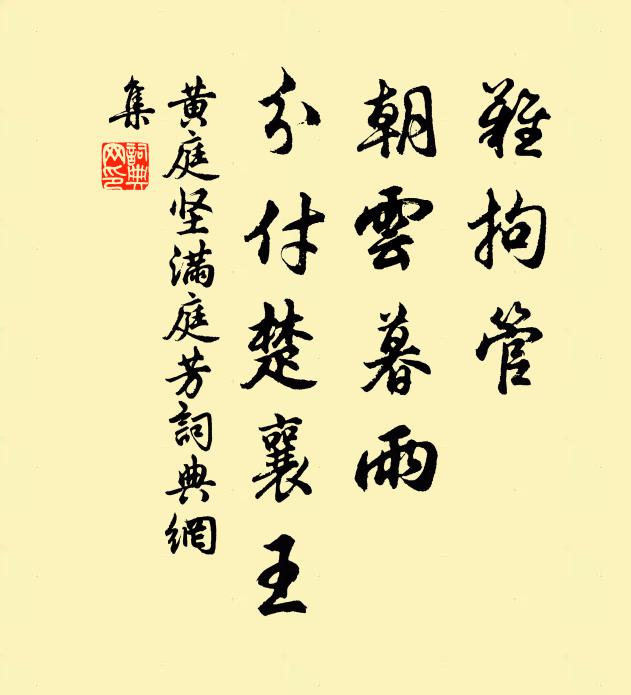 難拘管
朝雲暮雨
分付楚襄王
黄庭坚滿庭芳詞典網
集
詞典
网印